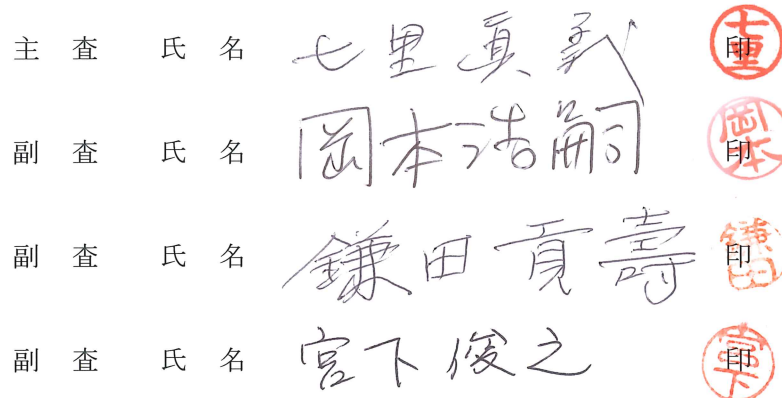 主査 氏名 七里眞義 印
副査 氏名 岡本浩嗣 印
副査 氏名 鎌田貢壽 印
副査 氏名 宮下俊之 印